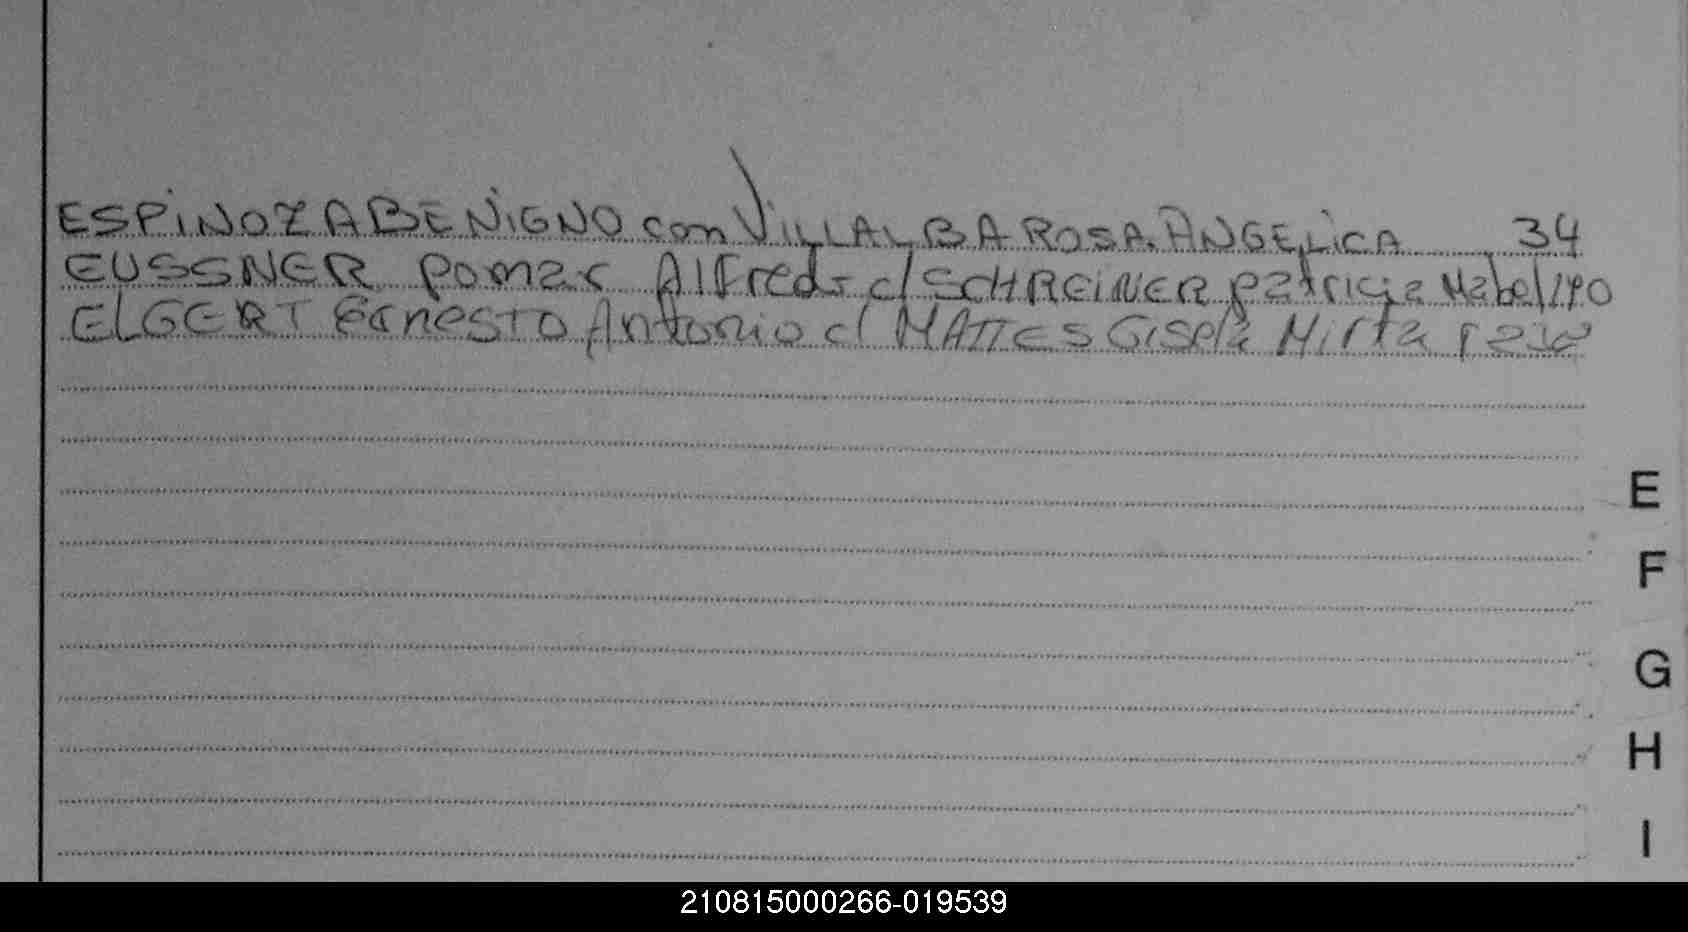 ESPINOZA BENIGNO con VILLALBA ROSA ANGELICA 34
EUSSNER Alfredo c/ SCHREINER Patricia Mabel 190
ELGERT Ernesto Antonio c/ MATTES Gisela Mirta
E
F
G
H
I
210815000266-019539